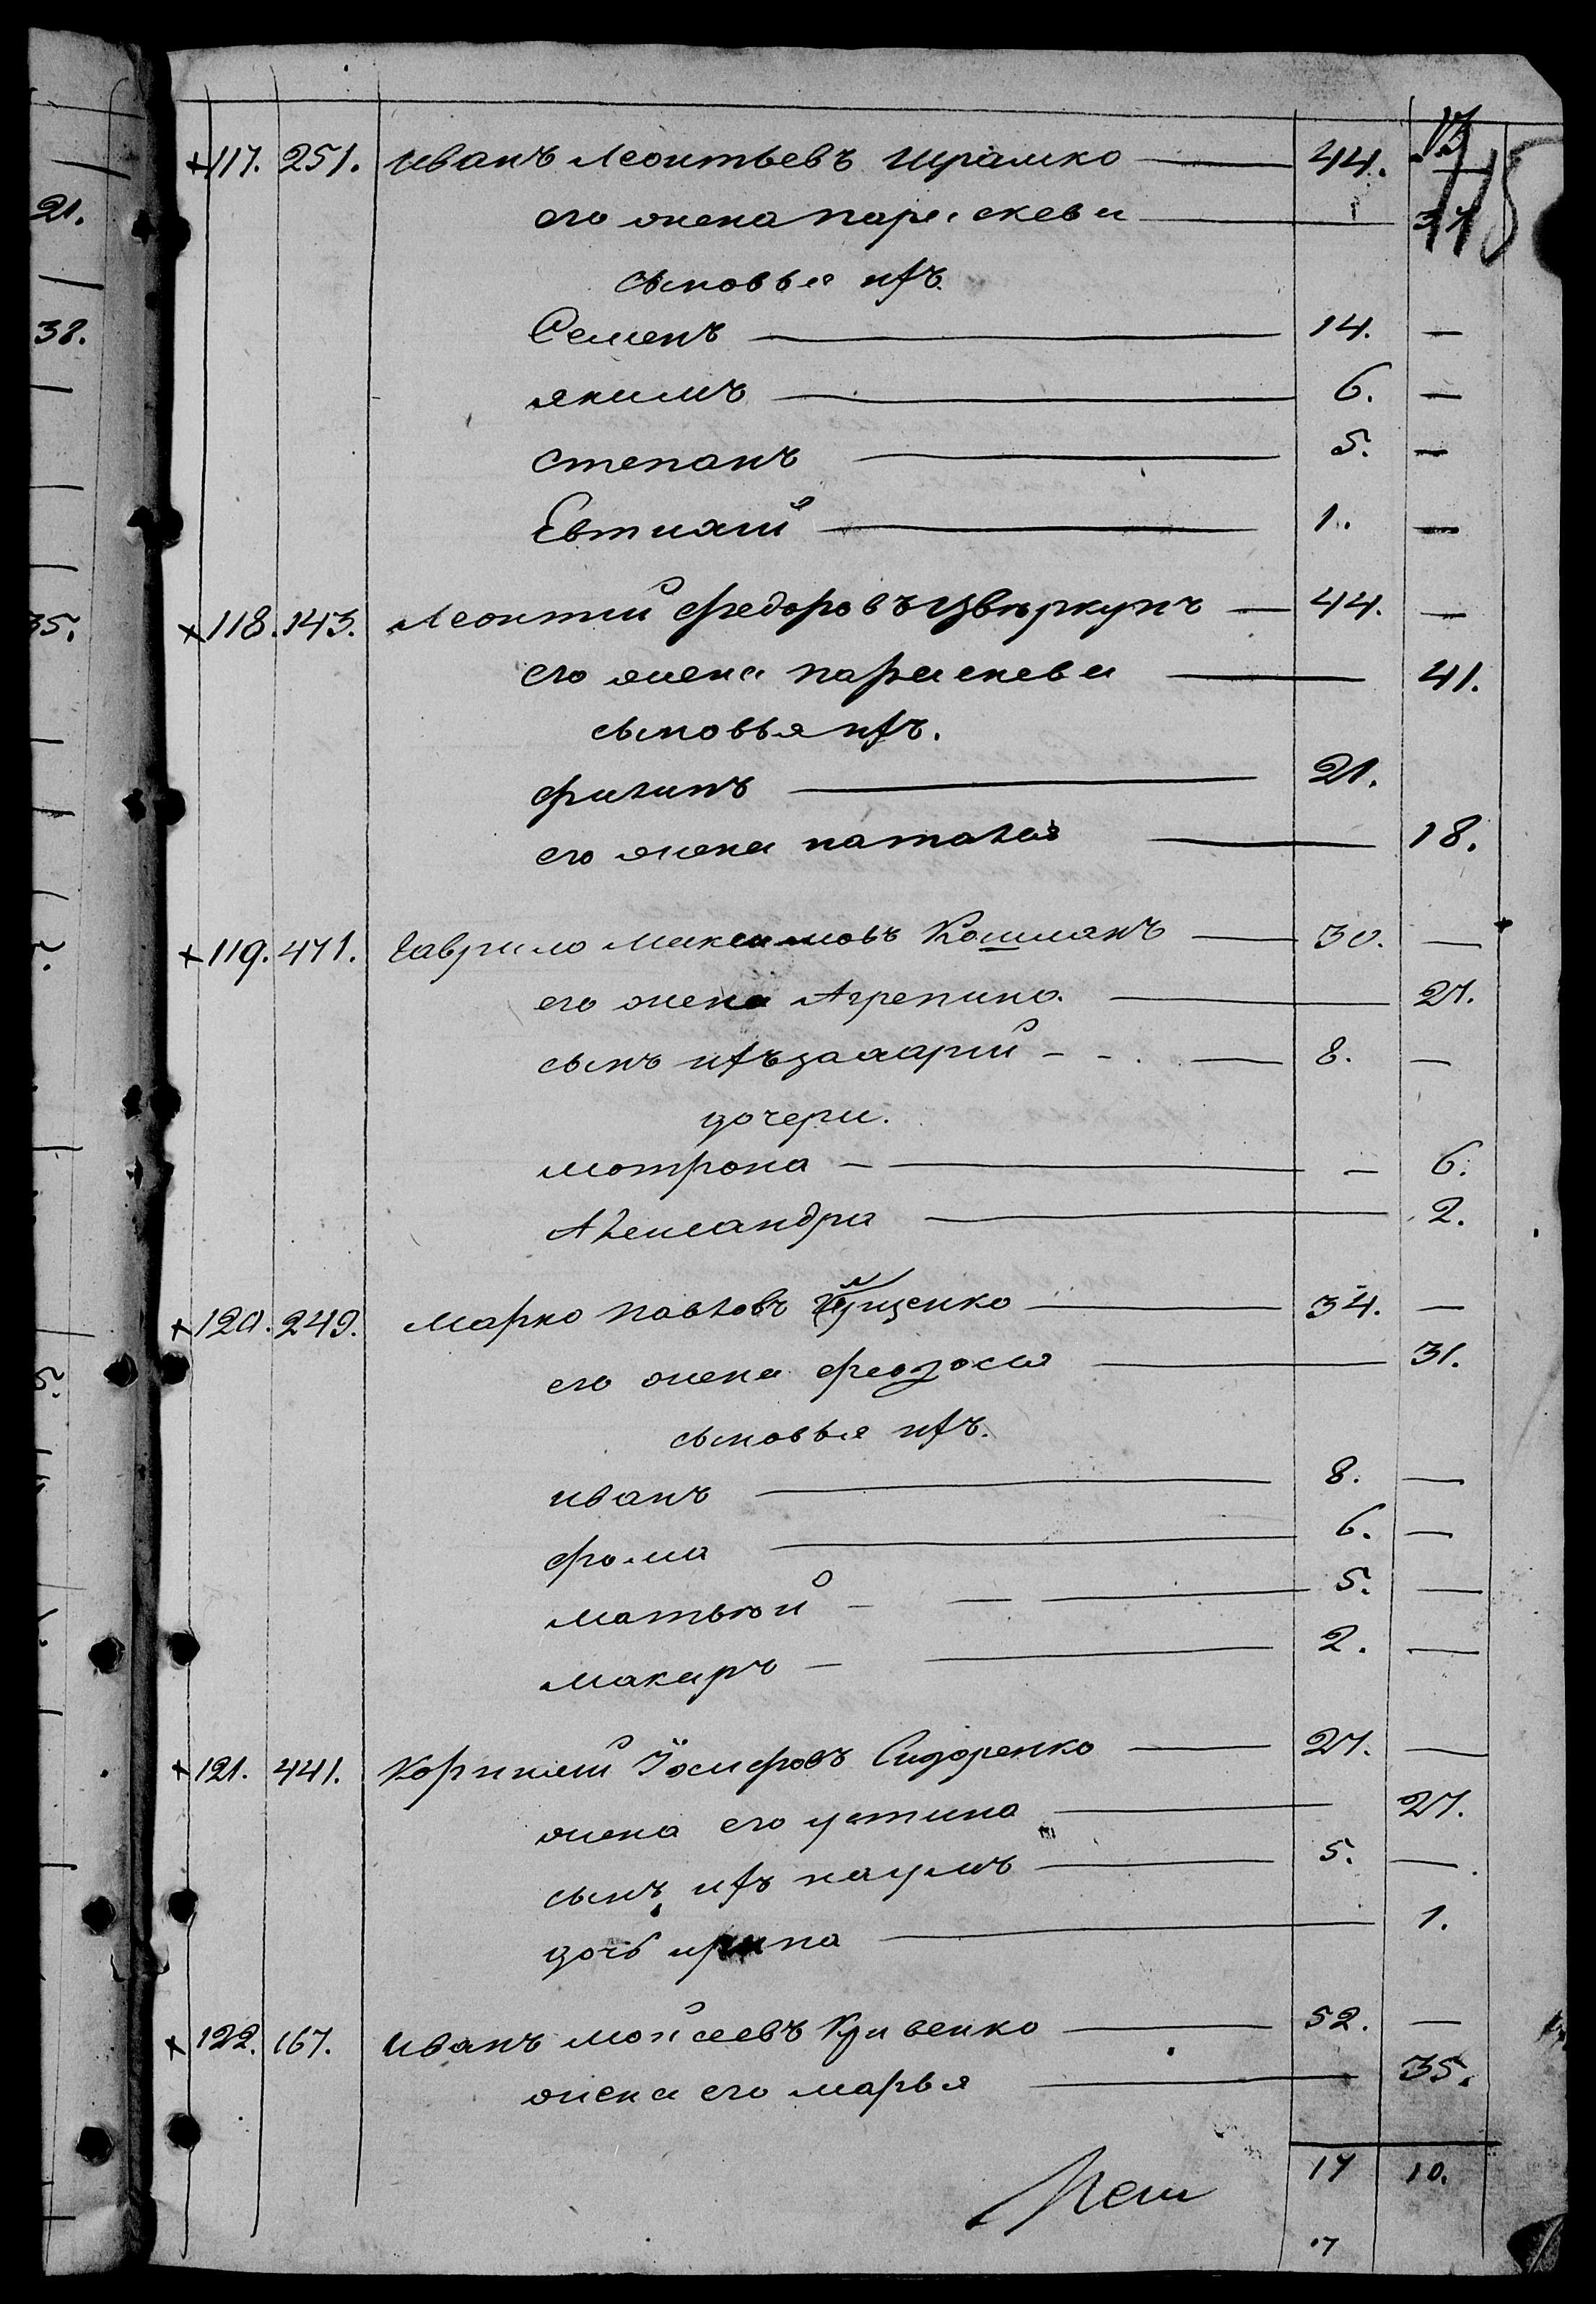 117. 251. Иванъ Леонтьевъ Шрамко 44.
его жена Параскева 37
сыновья ихъ.
Семенъ 14. —
Якимъ 6. —
Степанъ 5. —
Евтихій 1. —
118. 143. Леонтій Федоровъ Цвиркунъ 44. —
его жена Параскева 41.
сыновья ихъ.
Филипъ 21.
его жена Наталія 18.
119. 471. Гаврило Максимовъ Кошманъ 30. —
его жена Агрепина 27.
сынъ ихъ Захарій 8. —
дочери.
Мотрона — 6.
Александра 2.
120. 249. Марко Павловъ 34. —
его жена Феодосія 31.
сыновья ихъ.
Иванъ 8. —
Фома 6. —
Матвѣй 5. —
Макаръ 2. —
121. 441. Корнилій Іосифовъ Сидоренко 27. —
жена его Устина 27.
сынъ ихъ Наумъ 5. —
дочь Ирина 1.
122. 167. Иванъ Мойсеевъ Кривенко 52. —
жена его Марья 35.
17 10.
21.
38.
35.